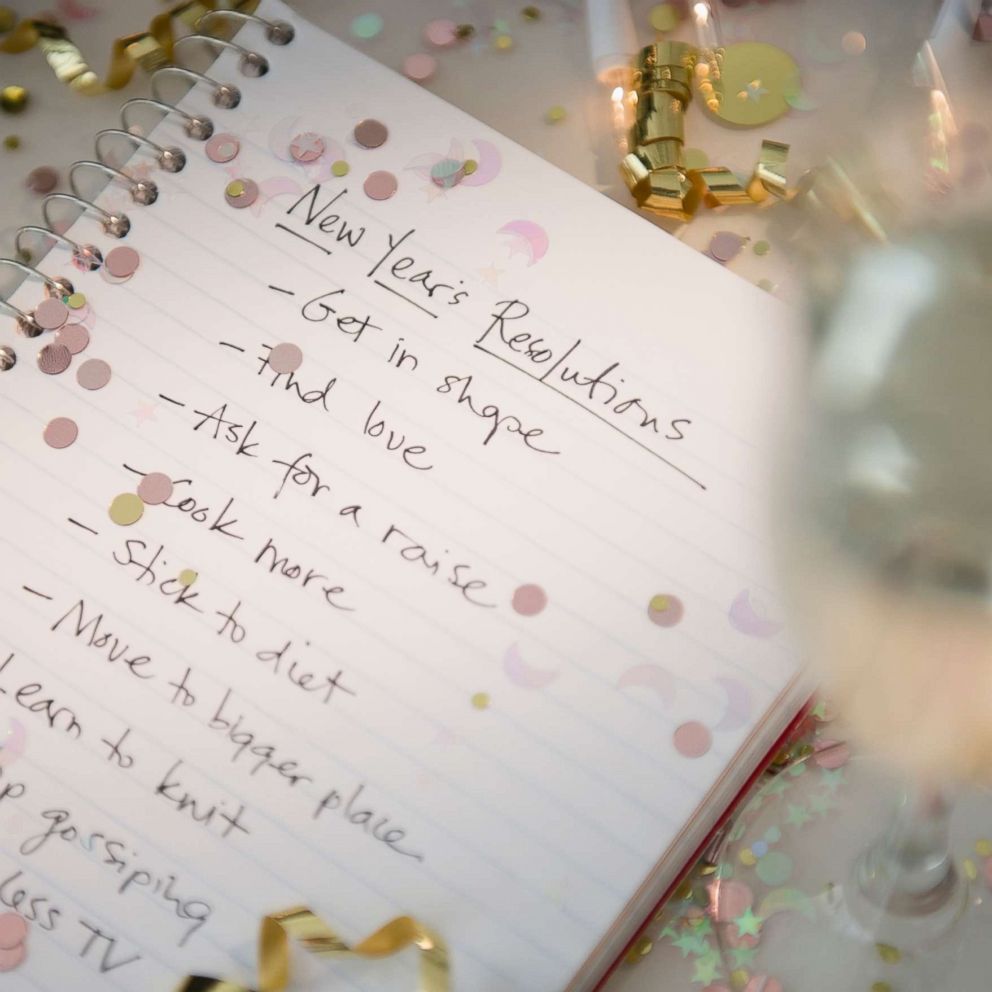 New Year's Resolutions
- Get in shape
- Find love
- Ask for a raise
- Cook more
- Stick to diet
- Move to bigger place
Learn to knit
gossiping
less TV